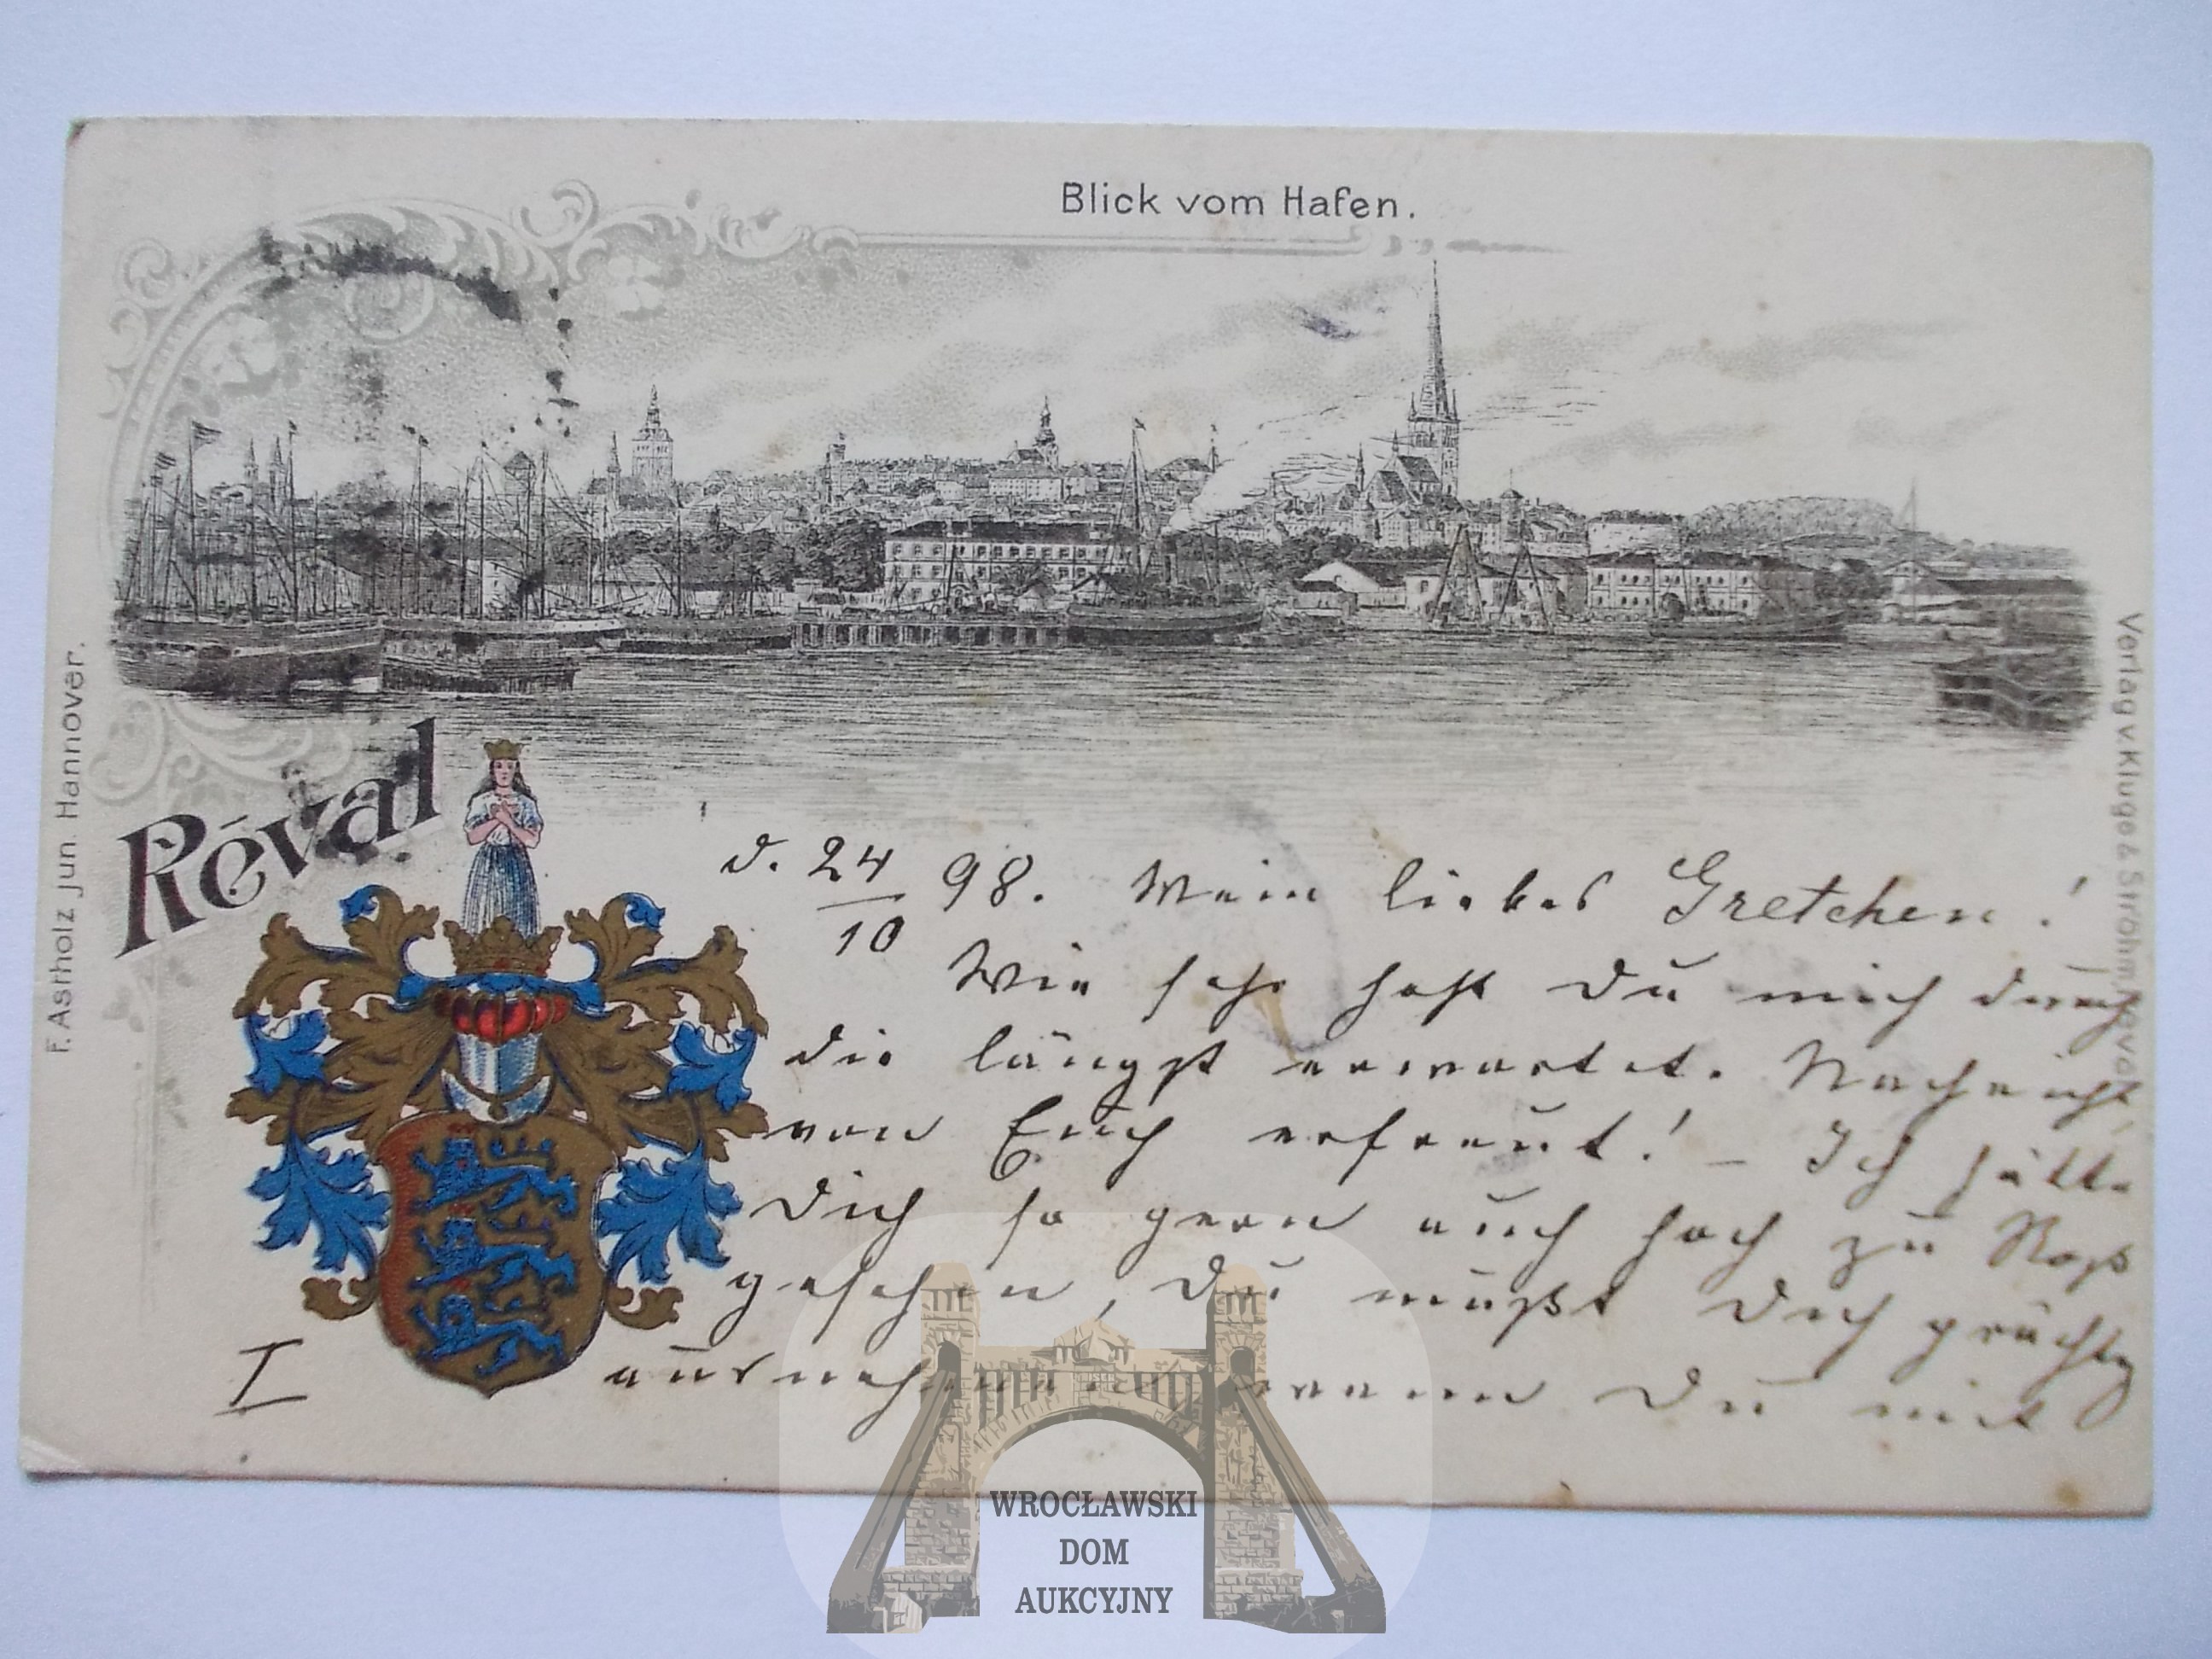 Blick vom Hafen.
Réval
F. Astholz jun. Hannover.
Verlag v Kluge & Ströhm, Reval
d. 24/10 98. Mein liebes Gretchen!
Wie sehr hast Du mich durch
die längst erwartete Nachricht
von Euch erfreut! – Ich hätte
Dich so gern auch hoch zu Roß
gesehen, Du mußt Dich prächtig
ausnehmen wenn Du mit
I
WROCŁAWSKI
DOM
AUKCYJNY